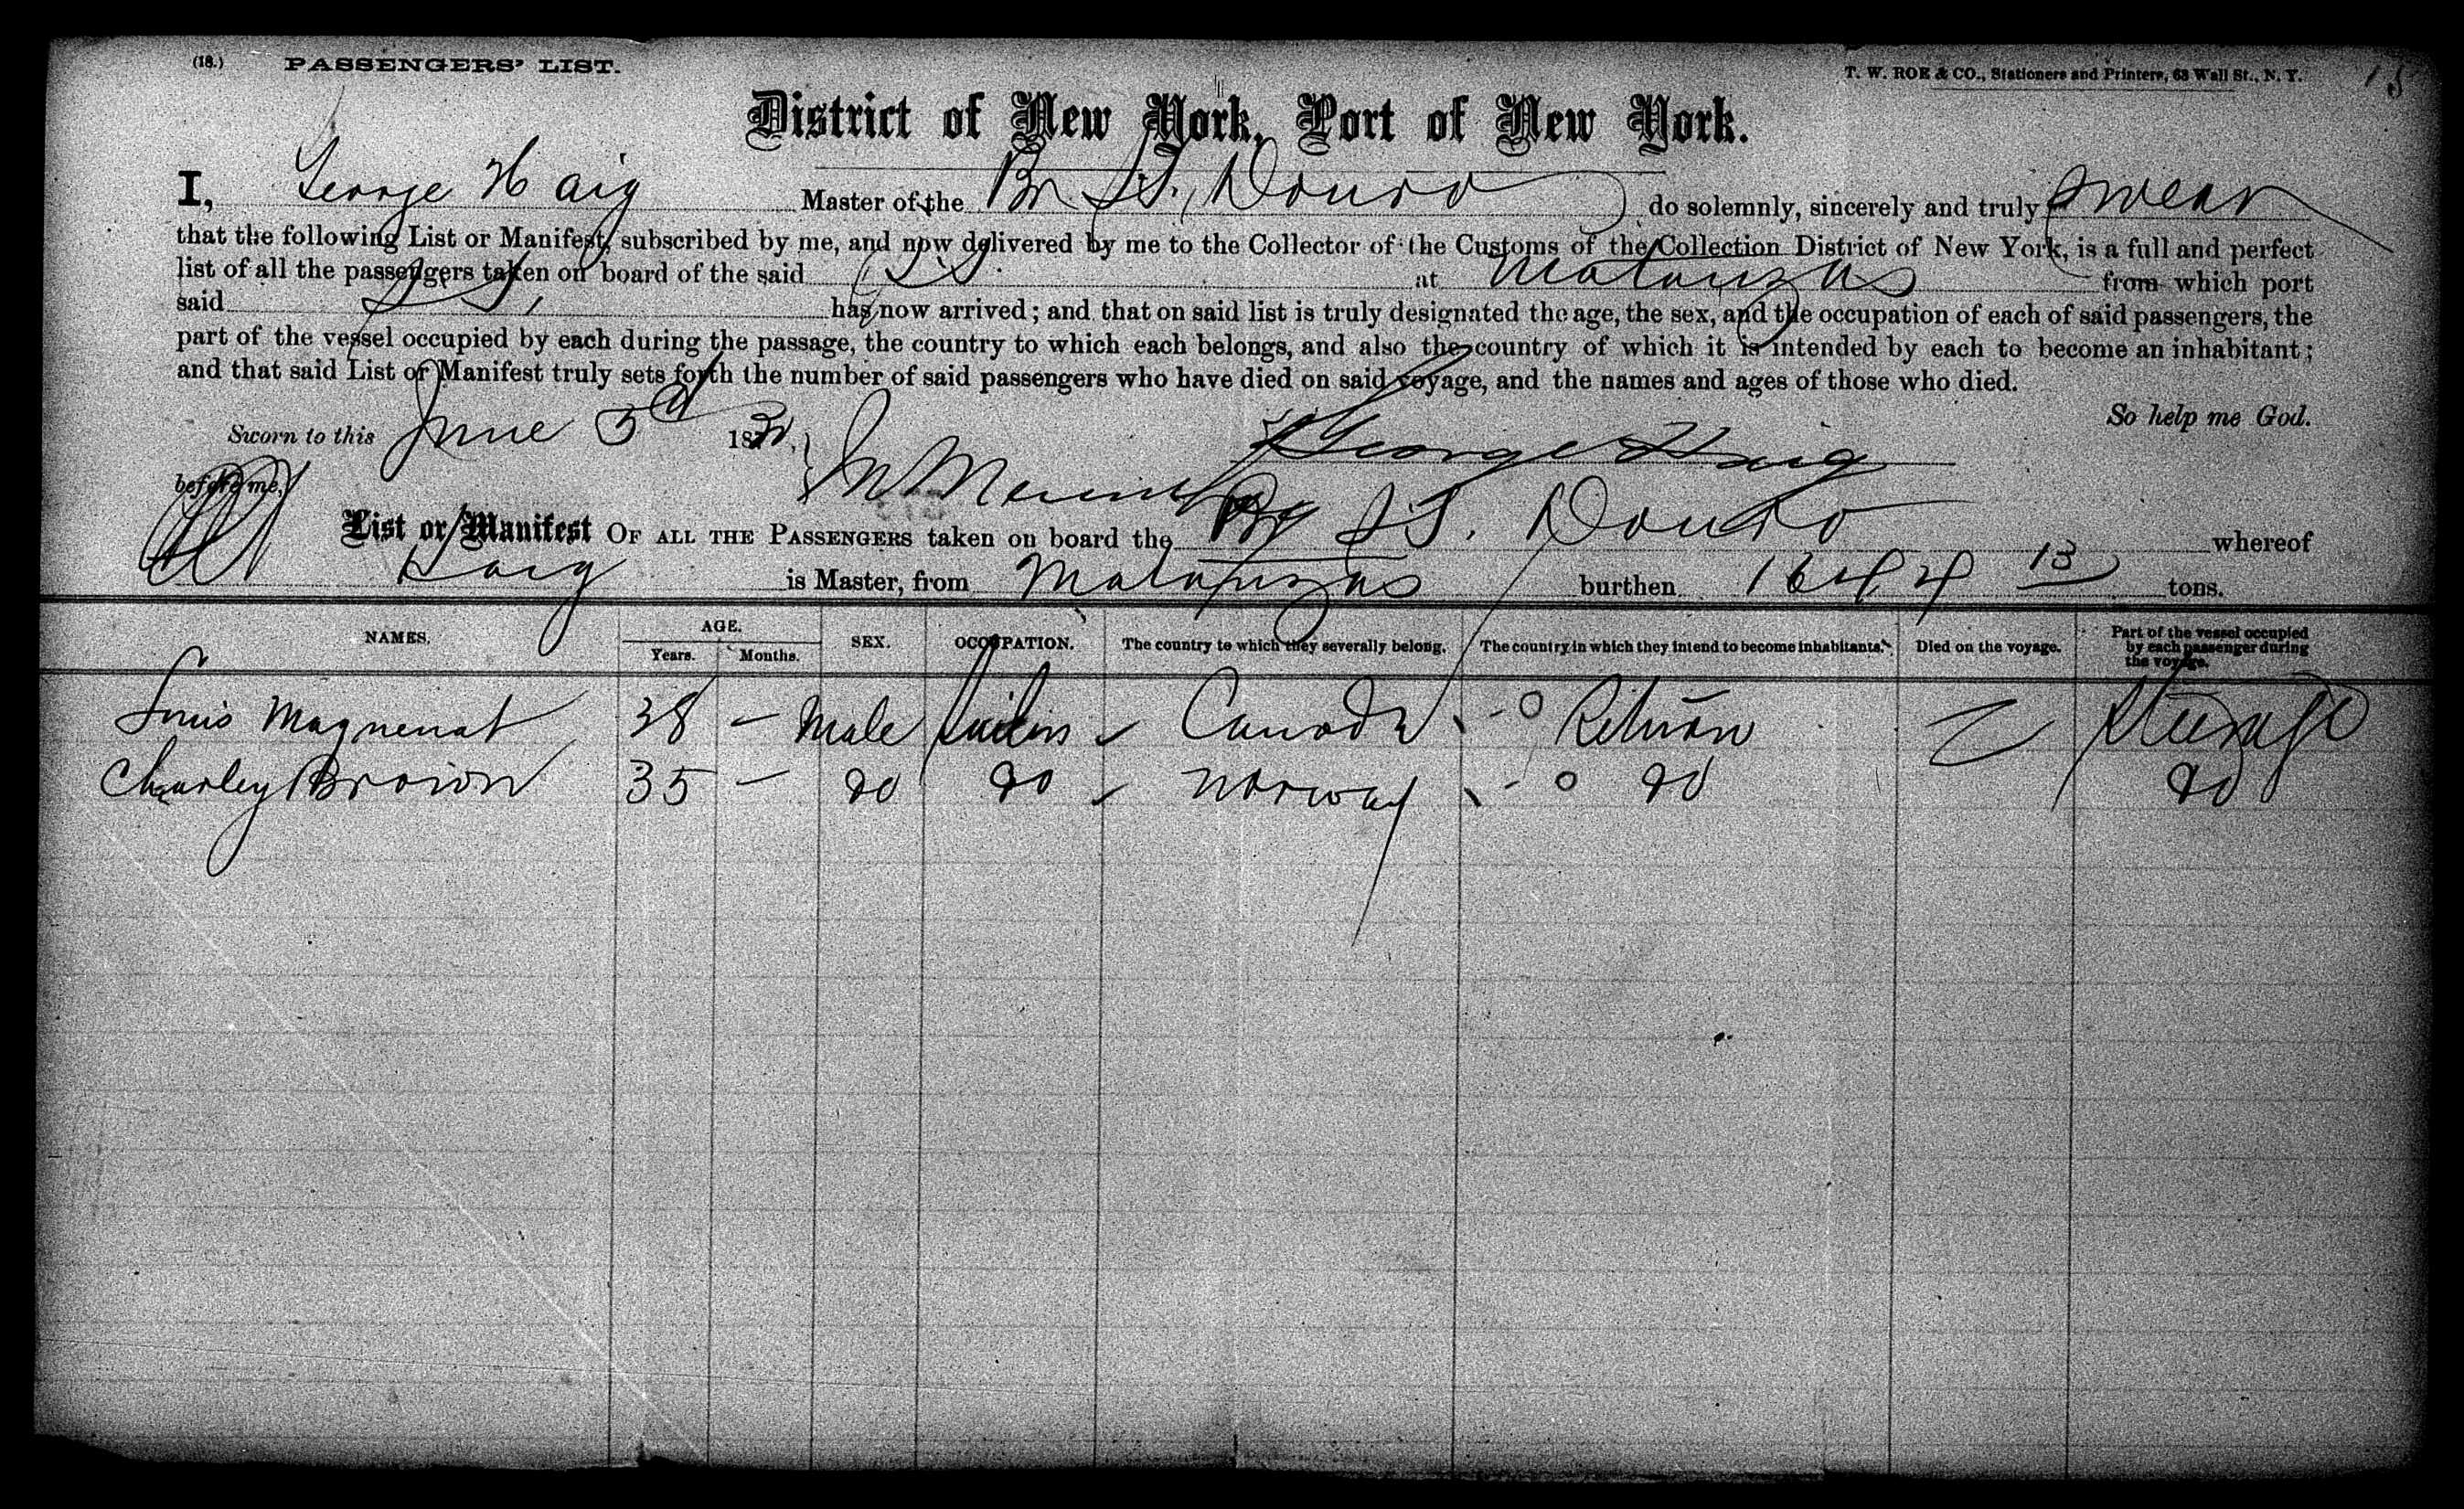 (18.) PASSENGERS' LIST. T. W. ROE & CO., Stationers and Printers, 63 Wall St., N. Y. 15
District of New York, Port of New York.
I, George Haig Master of the Br S.S., Douro do solemnly, sincerely and truly swear
that the following List or Manifest, subscribed by me, and now delivered by me to the Collector of the Customs of the Collection District of New York, is a full and perfect
list of all the passengers taken on board of the said S.S. at Matanzas from which port
said S.S. has now arrived; and that on said list is truly designated the age, the sex, and the occupation of each of said passengers, the
part of the vessel occupied by each during the passage, the country to which each belongs, and also the country of which it is intended by each to become an inhabitant;
and that said List or Manifest truly sets forth the number of said passengers who have died on said voyage, and the names and ages of those who died.
So help me God.
Sworn to this June 3d 18
George Haig
before me,
List or Manifest OF ALL THE PASSENGERS taken on board the Br S.S. Douro whereof
Haig is Master, from Matanzas burthen 1644 13 tons.
NAMES. AGE. Years. Months. SEX. OCCUPATION. The country to which they severally belong. The country in which they intend to become inhabitants. Died on the voyage. Part of the vessel occupied by each passenger during the voyage.
Louis Magnenat 38 — Male Canada Return Steerage
Charley Brown 35 — do do Norway do do